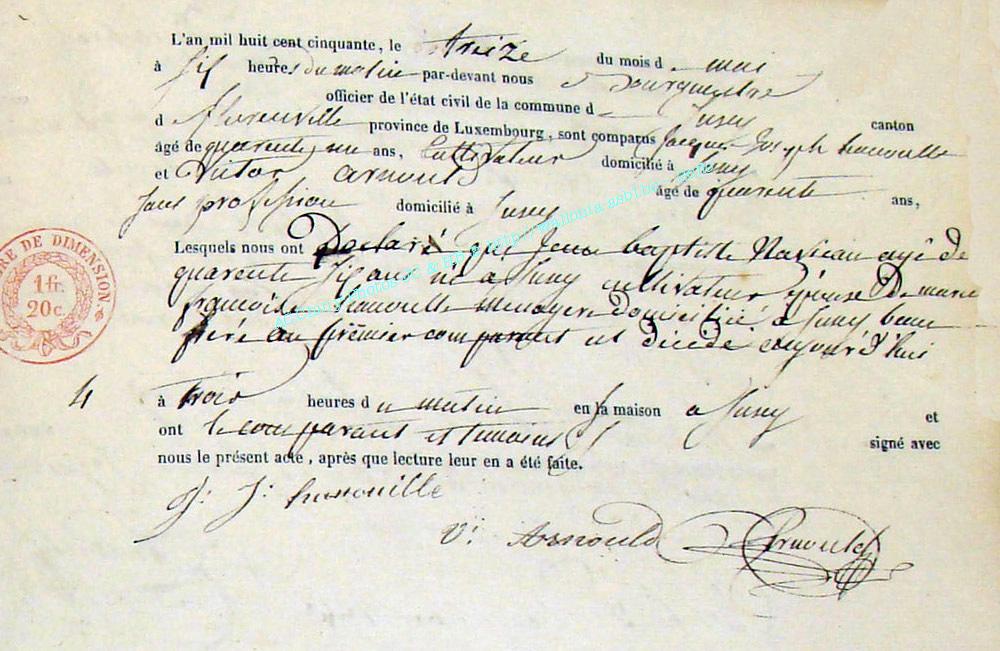 L'an mil huit cent cinquante, le treize du mois de mai
à six heures du matin par-devant nous Bourgmestre
officier de l'état civil de la commune d Suxy canton
d florenville province de Luxembourg, sont comparus Jacques Joseph
âgé de quarente un ans, Cultivateur domicilié à Suxy
et Victor Arnould âgé de quarente ans,
sans profession domicilié à Suxy
Lesquels nous ont Déclaré que Jean baptiste agé de
quarente six ans né a Suxy cultivateur époux De marie
françoise menagere domicilié a Suxy beau
frére au premier comparant est décédé aujourd'hui
4 à trois heures du matin en sa maison a Suxy et
ont le comparant et temoins signé avec
nous le présent acte, après que lecture leur en a été faite.
J: J:
V: Arnould
RE DE DIMENSION
1 fr.
20 c.